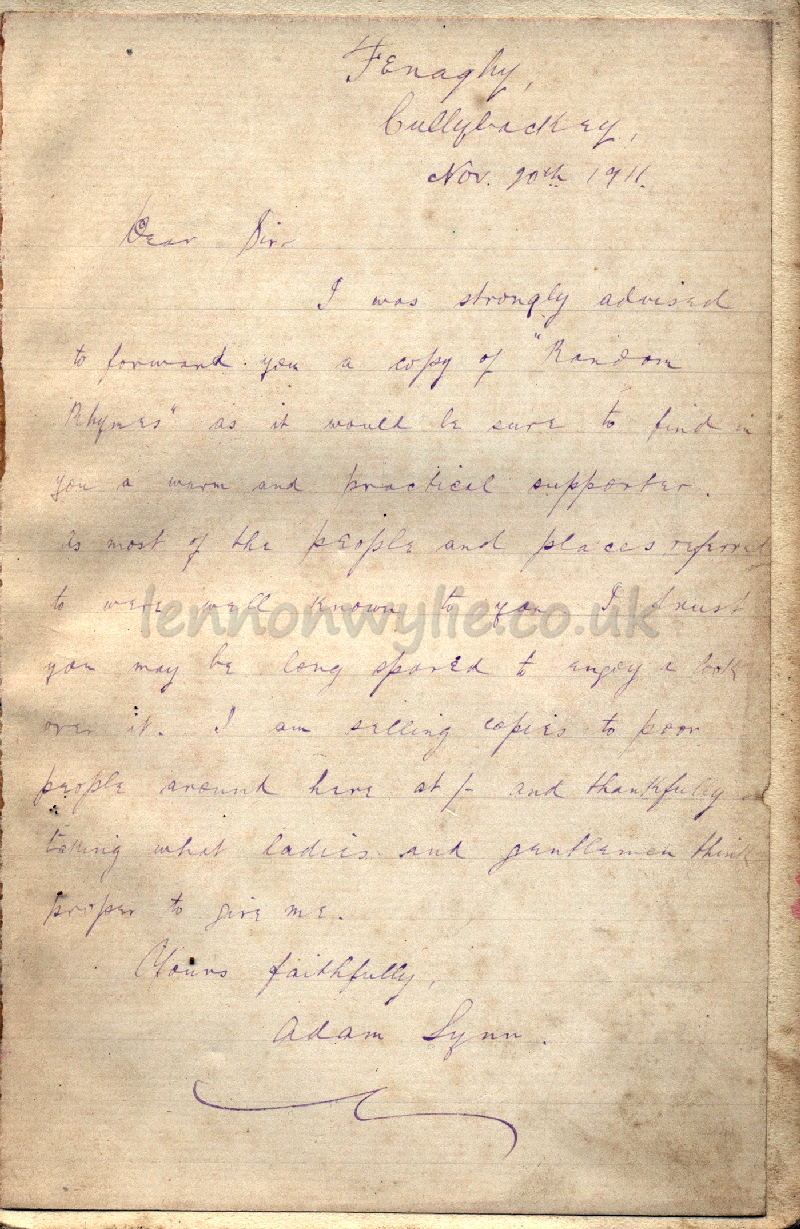 Fenaghy,
Cullybackey,
Nov. 20th 1911.
Dear Sir
I was strongly advised
to forward you a copy of "Random
Rhymes" as it would be sure to find in
you a warm and practical supporter.
As most of the people and places referred
to were well known to you I trust
lennonwylie.co.uk
you may be long spared to enjoy a look
over it. I am selling copies to poor
people around here at 1/- and thankfully
taking what ladies and gentlemen think
proper to give me.
Yours faithfully,
Adam Lynn.